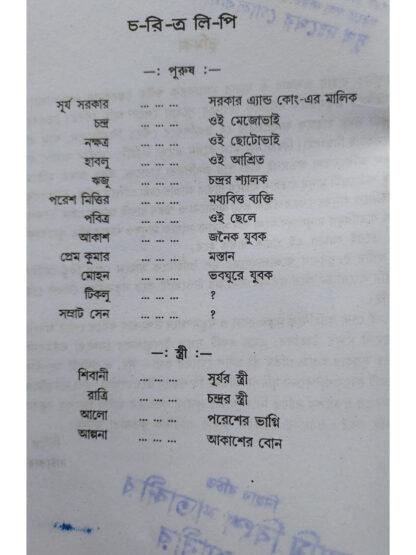 চ-রি-ত্র লি-পি
—: পুরুষ :—
সূর্য সরকার ... ... ... সরকার এ্যান্ড কোং-এর মালিক
চন্দ্র ... ... ... ওই মেজোভাই
নক্ষত্র ... ... ... ওই ছোটোভাই
হাবলু ... ... ... ওই আশ্রিত
ঋজু ... ... ... চন্দ্রর শ্যালক
পরেশ মিত্তির ... ... ... মধ্যবিত্ত ব্যক্তি
পবিত্র ... ... ... ওই ছেলে
আকাশ ... ... ... জনৈক যুবক
প্রেম কুমার ... ... ... মস্তান
মোহন ... ... ... ভবঘুরে যুবক
টিকলু ... ... ... ?
সম্রাট সেন ... ... ... ?
—: স্ত্রী :—
শিবানী ... ... ... সূর্যর স্ত্রী
রাত্রি ... ... ... চন্দ্রর স্ত্রী
আলো ... ... ... পরেশের ভাগ্নি
আল্পনা ... ... ... আকাশের বোন